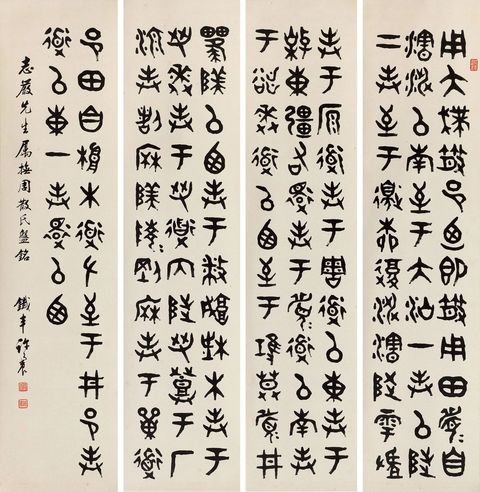 用夨散邑迺即散用田眉自
瀗涉以南至于大沽一封以陟
二封至于邊柳復涉瀗陟雩
封于原道封于周道以東封于
東疆右還封于眉道以南封
于逨道以西至于莫眉井
以西封于城木封
于芻逨封于芻道内陟芻登于厂
湶封割陵剛封于道
邑田自木道左至于井邑封
道以東一封還以西
志嚴先生屬撫周散氏盤銘
鐵 許